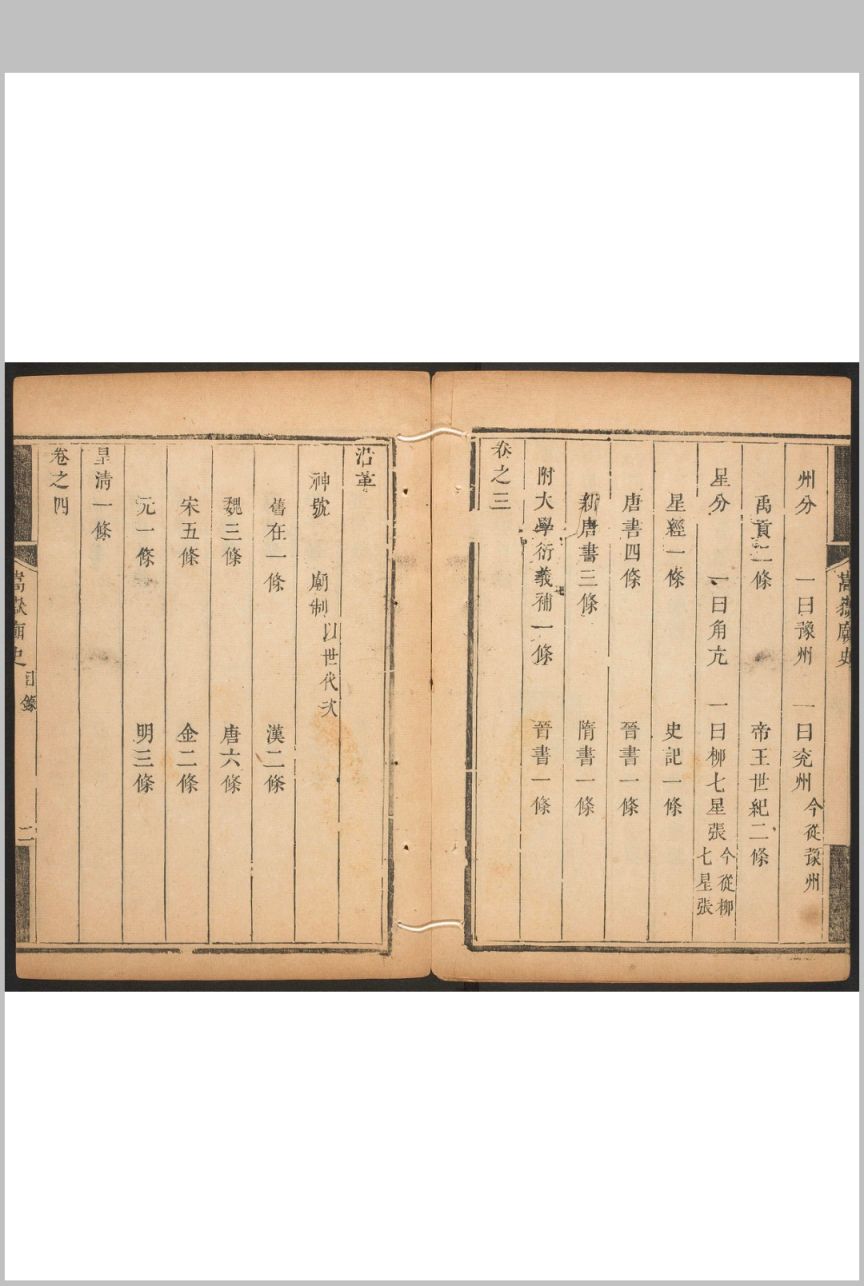 嵩嶽廟史
州分 一曰豫州 一曰兖州 今從豫州
禹貢二條 帝王世紀二條
星分 一曰角亢 一曰柳七星張 今從柳七星張
星經一條 史記一條
唐書四條 晉書一條
新唐書三條 隋書一條
附大學衍義補一條 晉書一條
卷之三
沿革
神號 廟制 以世代次
舊在一條 漢二條
魏三條 唐六條
宋五條 金二條
元一條 明三條
皇清一條
卷之四
嵩嶽廟史 目錄 二